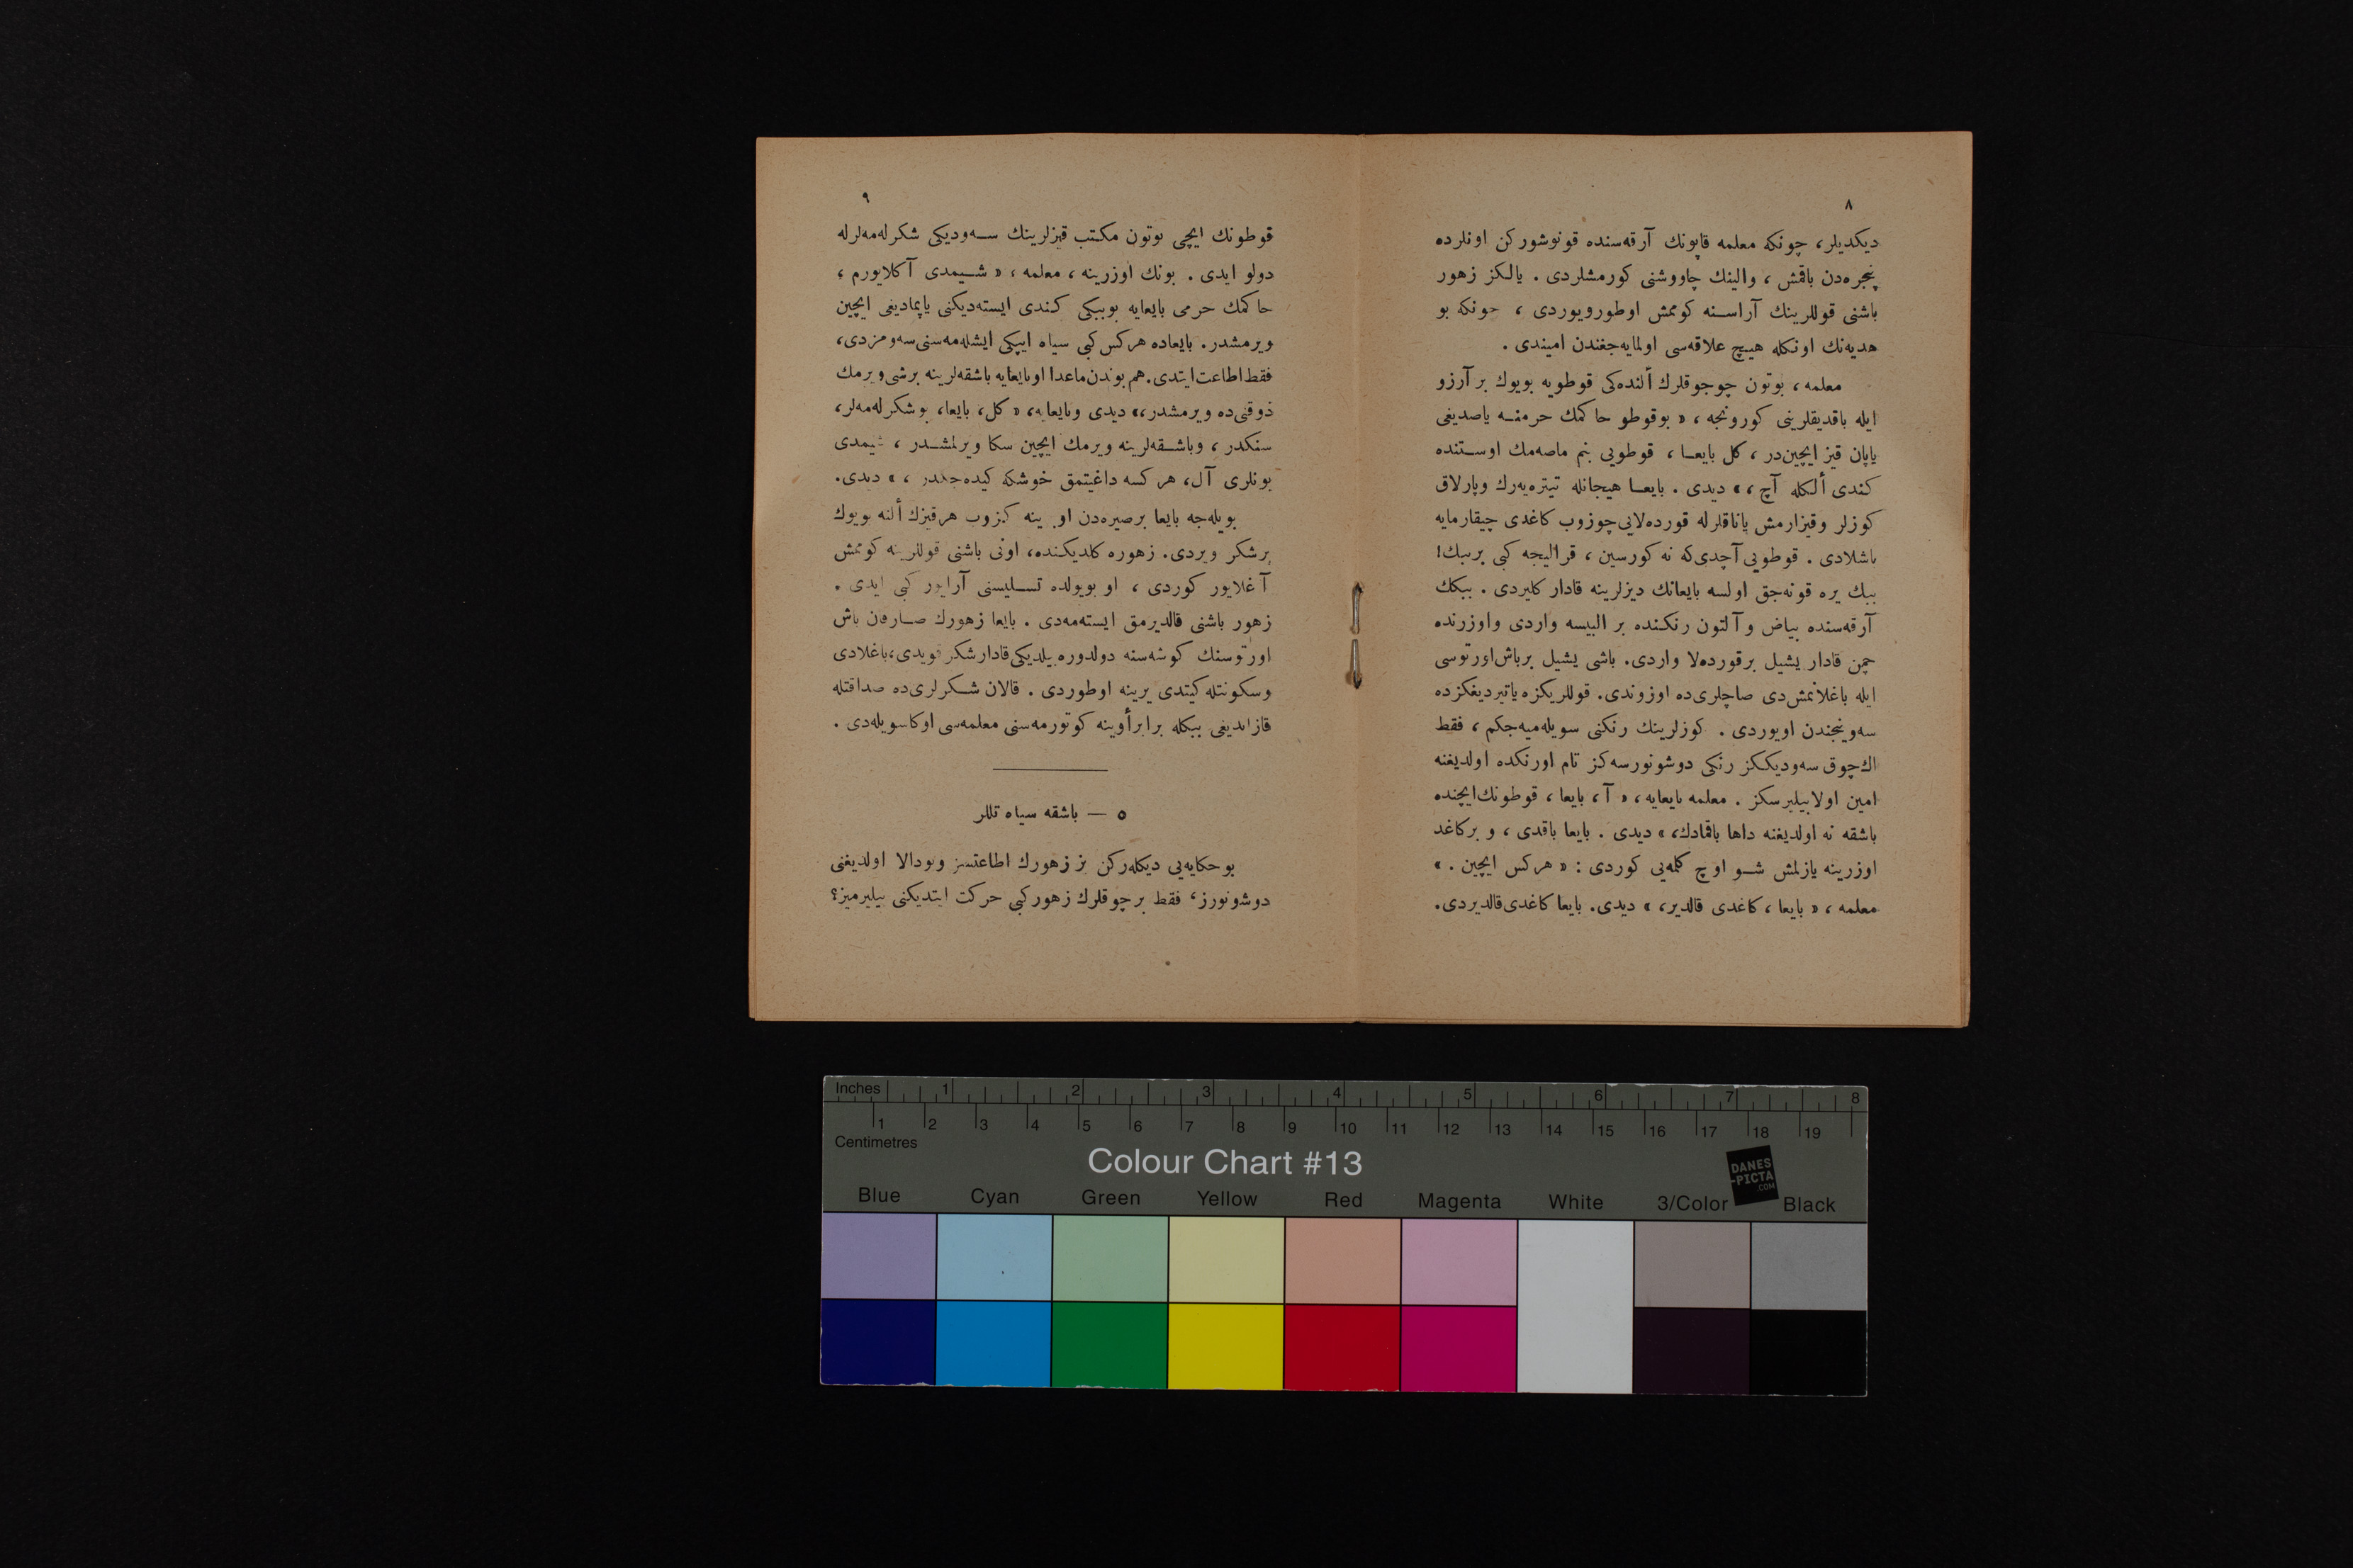 ٨
دیكدیلر، چونكه معلمه قاپونك آرقه‌سنده قونوشوركن اونلرده
پنجره‌دن باقمش ، والینك چاووشنی كورمشلردی . یالكز زهور
باشنی قوللرینك آراسنه كوممش اوطورویوردی ، چونكه بو
هدیه‌نك اونكله هیچ علاقه‌سی اولمایه‌جغندن امیندی .
معلمه ، بوتون چوجوقلرك ألنده‌كی قوطویه بویوك بر آرزو
ایله باقدیقلرینی كورونجه ، « بوقوطو حاكمك حرمنه یاصدیغی
یاپان قیز ایچین‌در ، كل بایعا ، قوطویی بنم ماصه‌مك اوستنده
كندی ألكله آچ ، » دیدی . بایعا هیجانله تیتره‌یه‌رك وپارلاق
كوزلر وقیزارمش یاناقلرله قورده‌لایی چوزوب كاغدی چیقارمایه
باشلادی . قوطویی آچدی‌كه نه كورسین ، قرالیجه كبی بربیك!
ببك یره قونه‌جق اولسه بایعانك دیزلرینه قادار كلیردی . ببكك
آرقه‌سنده بیاض و آلتون رنكنده بر البیسه واردی واوزرنده
چمن قادار یشیل برقورده‌لا واردی. باشی یشیل برباش‌اورتوسی
ایله باغلانمش‌دی صاچلری‌ده اوزوندی. قوللریكزه یاتیردیغكزده
سه‌وینجندن اویوردی . كوزلرینك رنكنی سویله‌میه‌جكم ، فقط
اك‌چوق سه‌ودیككز رنكی دوشونورسه‌كز تام اورنكده اولدیغنه
امین اولابیلیرسكز . معلمه بایعایه ، « آ ، بایعا ، قوطونك‌ایچنده
باشقه نه اولدیغنه داها باقمادك، » دیدی . بایعا باقدی ، و بركاغد
اوزرینه یازلمش شو اوچ كلمه‌یی كوردی : « هركس ایچین . »
معلمه ، « بایعا ، كاغدی قالدیر، » دیدی. بایعا كاغدی‌قالدیردی.
٩
قوطونك ایچی بوتون مكتب قیزلرینك سه‌ودیكی شكرله‌مه‌لرله
دولو ایدی . بونك اوزرینه ، معلمه ، « شیمدی آكلایورم ؛
حاكمك حرمی بایعایه بوببكی كندی ایسته‌دیكنی یاپمادیغی ایچین
ویرمشدر. بایعاده هركس كبی سیاه ایپكی ایشله‌مه‌سنی‌سه‌ومزدی،
فقط‌اطاعت‌ایتدی. هم بوندن‌ماعدا اوبایعایه باشقه‌لرینه برشی‌ویرمك
ذوقنی‌ده ویرمشدر،» دیدی وبایعایه، « كل، بایعا، بوشكرله‌مه‌لر،
سنكدر ، وباشقه‌لرینه ویرمك ایچین سكا ویرلمشدر ، شیمدی
بونلری آل، هركسه داغیتمق خوشكه كیده‌جكدر ، » دیدی.
بویله‌جه بایعا برصیره‌دن اوبرینه كزوب هرقیزك ألنه بویوك
برشكر ویردی. زهوره كلدیكنده، اونی باشنی قوللرینه كوممش
آغلایور كوردی ، او بویولده تسلیسنی آرایور كبی ایدی .
زهور باشنی قالدیرمق ایسته‌مه‌دی . بایعا زهورك صارقان باش
اورتوسنك كوشه‌سنه دولدوره‌بیلدیكی‌قادارشكر قویدی،باغلادی
وسكونتله كیتدی یرینه اوطوردی . قالان شكرلری‌ده صداقتله
قازاندیغی ببكله برابرأوینه كوتورمه‌سنی معلمه‌سی اوكاسویله‌دی .
٥ — باشقه سیاه تللر
بوحكایه‌یی دیكله‌ركن بز زهورك اطاعتسز وبودالا اولدیغنی
دوشونورز، فقط برچوقلرك زهوركبی حركت ایتدیكنی بیلیرمیز؟
Inches 1 2 3 4 5 6 7 8
1 2 3 4 5 6 7 8 9 10 11 12 13 14 15 16 17 18 19
Centimetres
Colour Chart #13
DANES
-PICTA
.COM
Blue Cyan Green Yellow Red Magenta White 3/Color Black